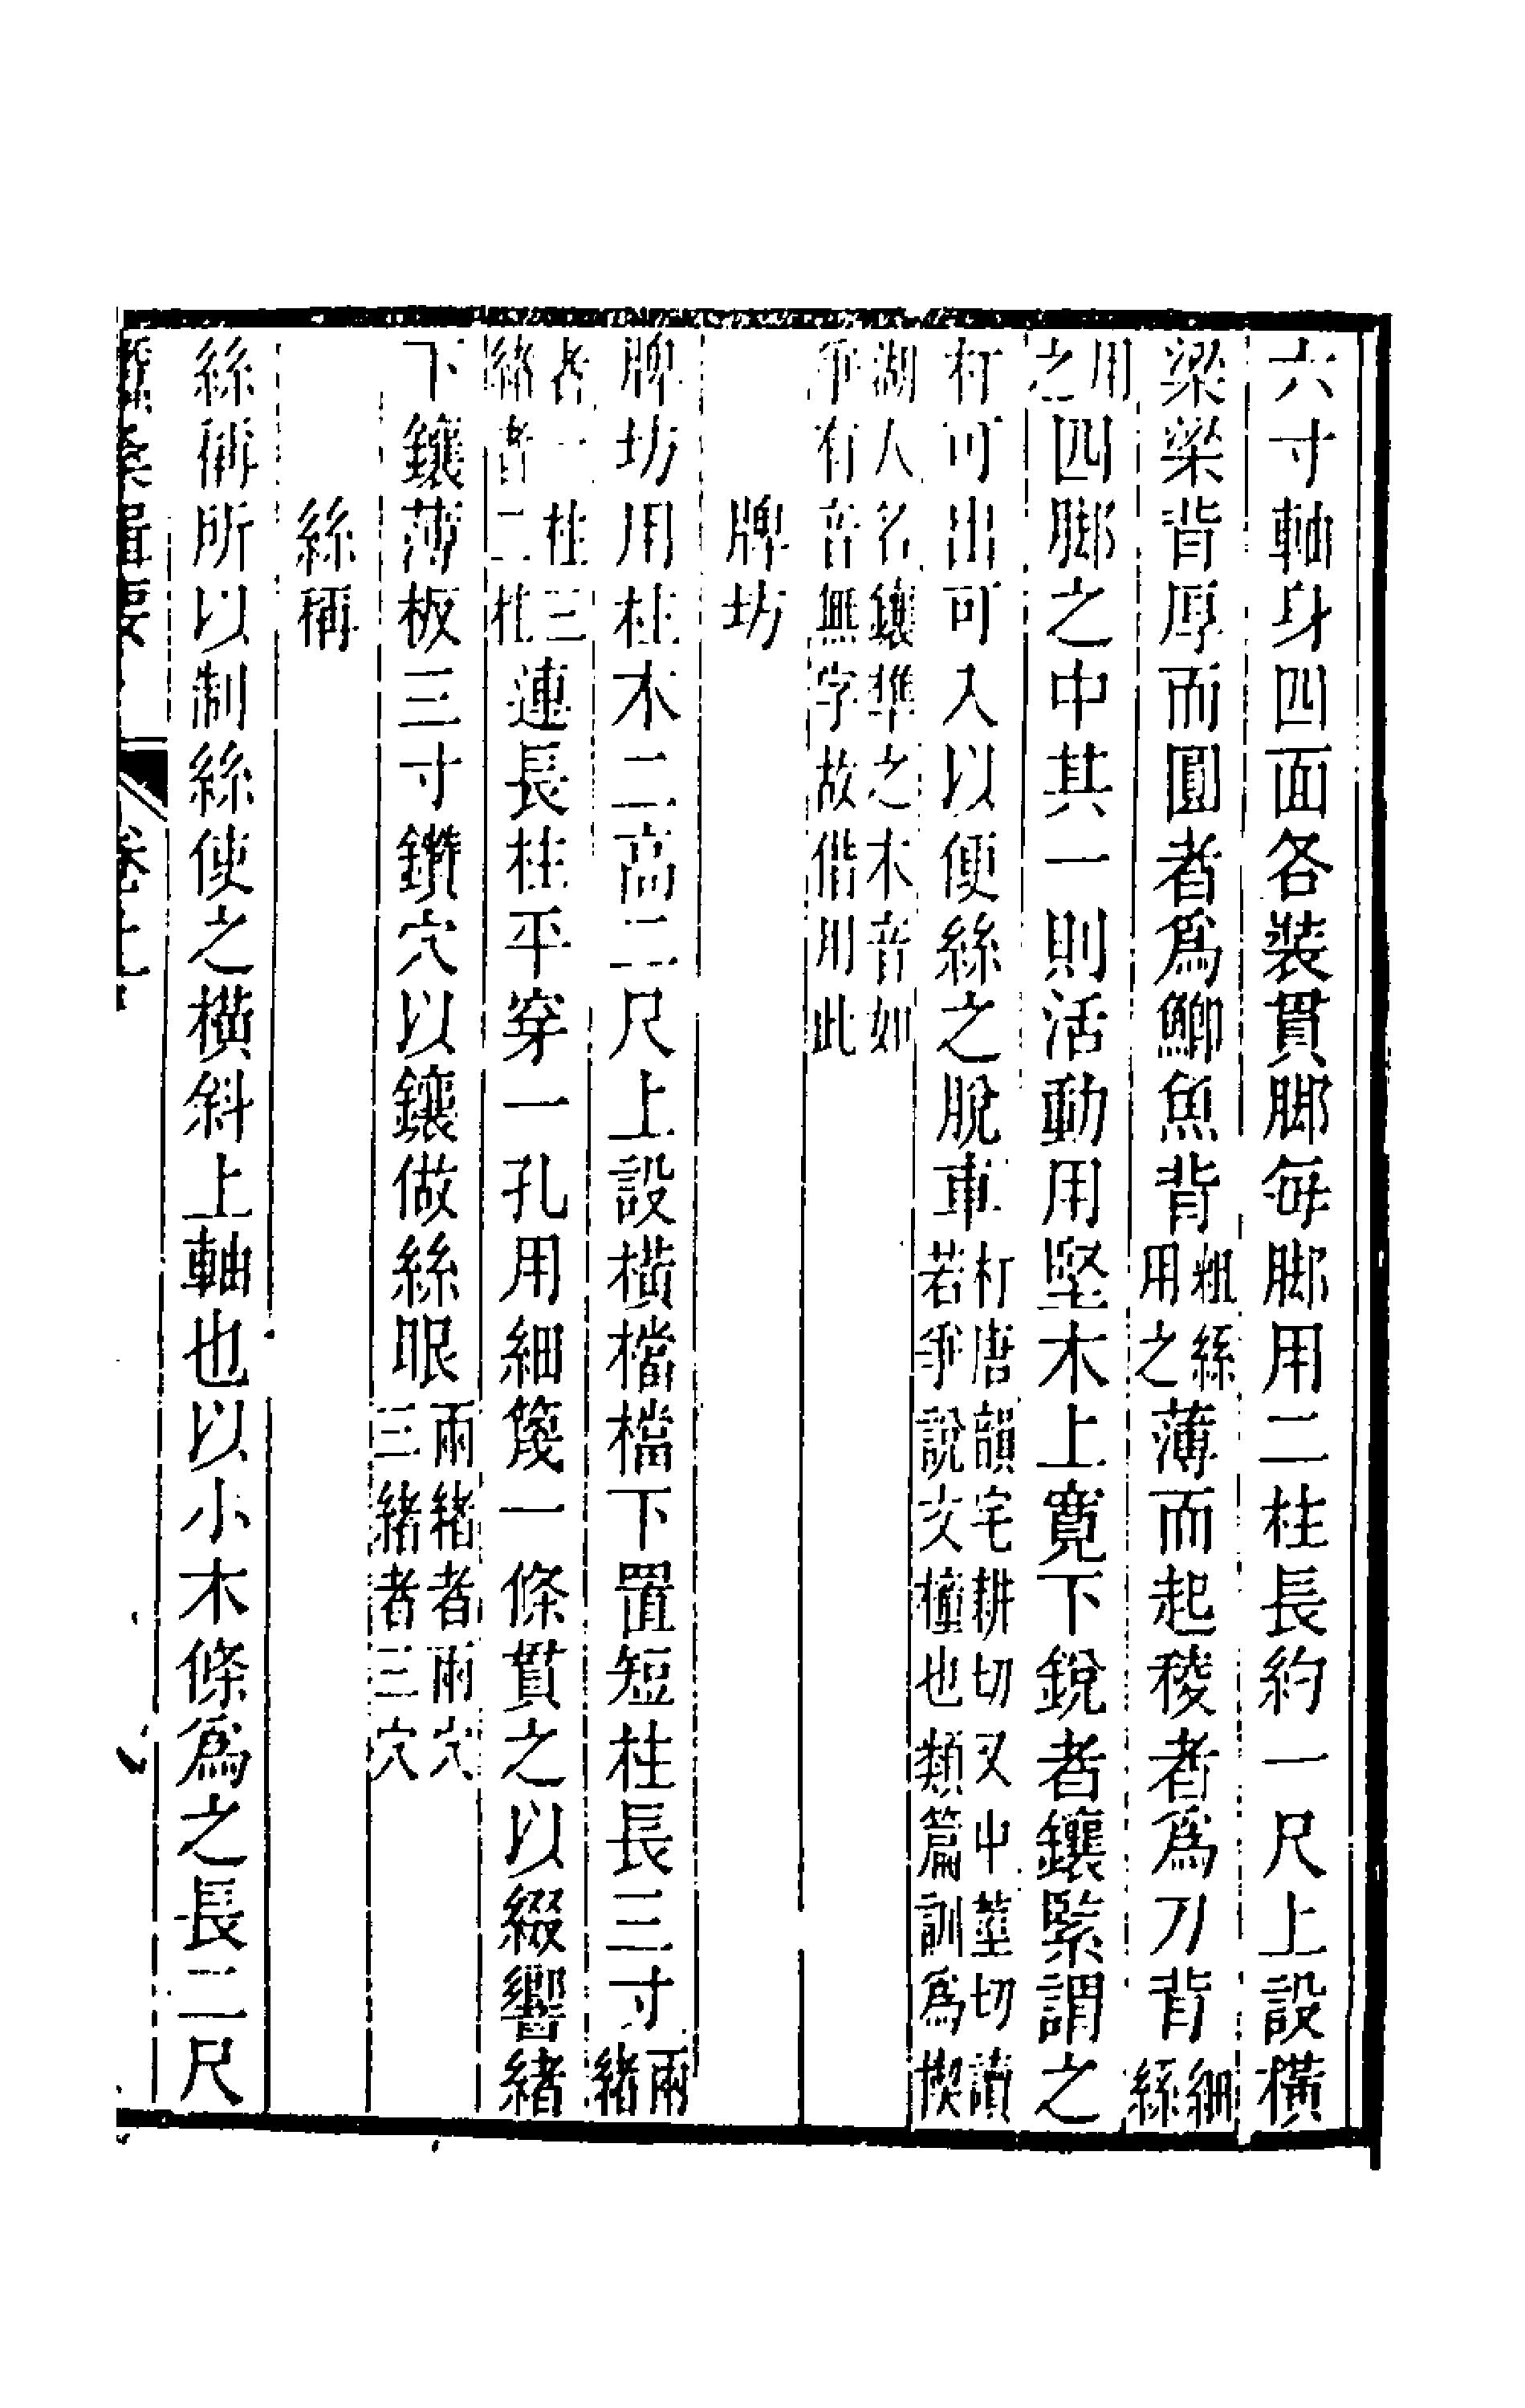 六寸軸身四面各裝貫脚每脚用二柱長約一尺上設橫
梁梁背厚而圓者爲鯽魚背粗絲用之薄而起稜者爲刀背細絲
用之四脚之中其一則活動用堅木上寬下銳者鑲緊謂之
朾可出可入以便絲之脫車朾唐韻宅耕切又中莖切讀若爭說文橦也類篇訓爲楔
湖人名鑲準之木音如爭有音無字故借用此
牌坊
牌坊用柱木二高二尺上設橫檔檔下置短柱長三寸兩緒
者一柱三緒者二柱連長柱平穿一孔用細篾一條貫之以綴響緒
下鑲薄板三寸鑽穴以鑲做絲眼兩緒者兩穴三緒者三穴
絲稱
絲稱所以制絲使之橫斜上軸也以小木條爲之長二尺
桑輯要 卷上